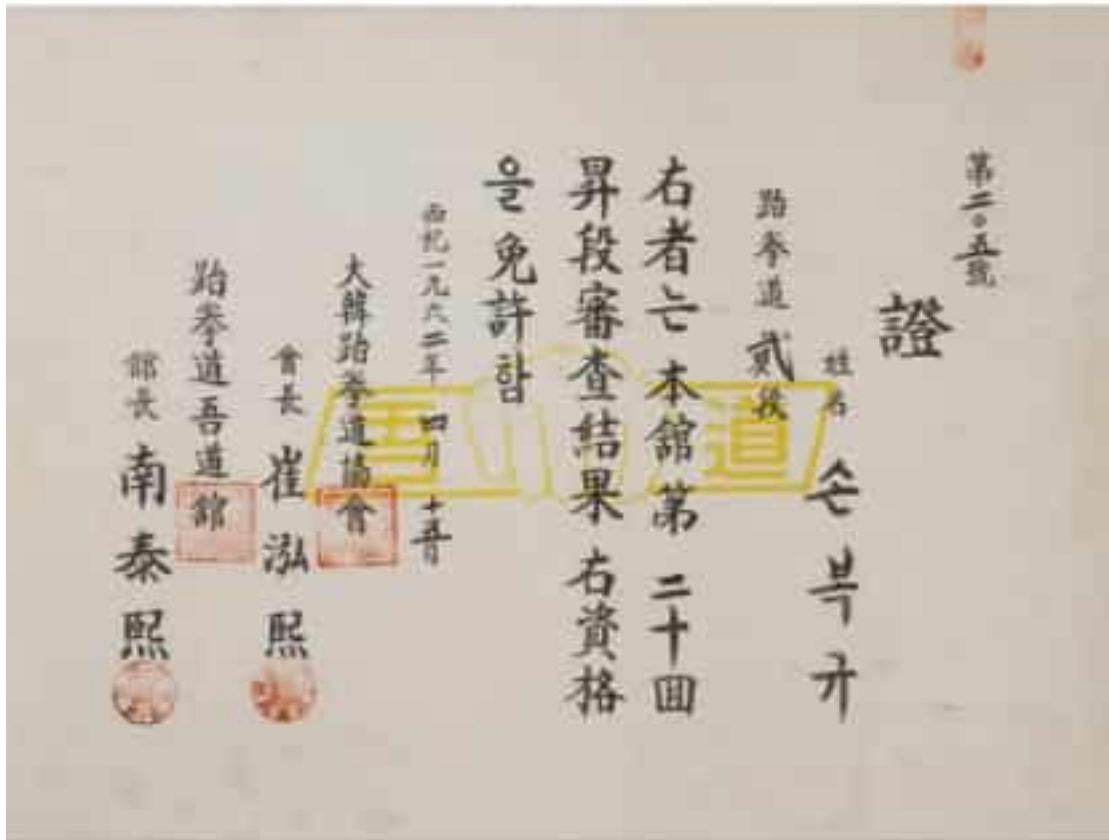 第二〇五號
證
姓名 손복규
跆拳道 貳段
右者는 本舘第 二十回
昇段審査結果 右資格
을 免許함
西紀一九六二年 四月 十五日
大韓跆拳道協會
會長 崔泓熙
跆拳道吾道舘
舘長 南泰熙